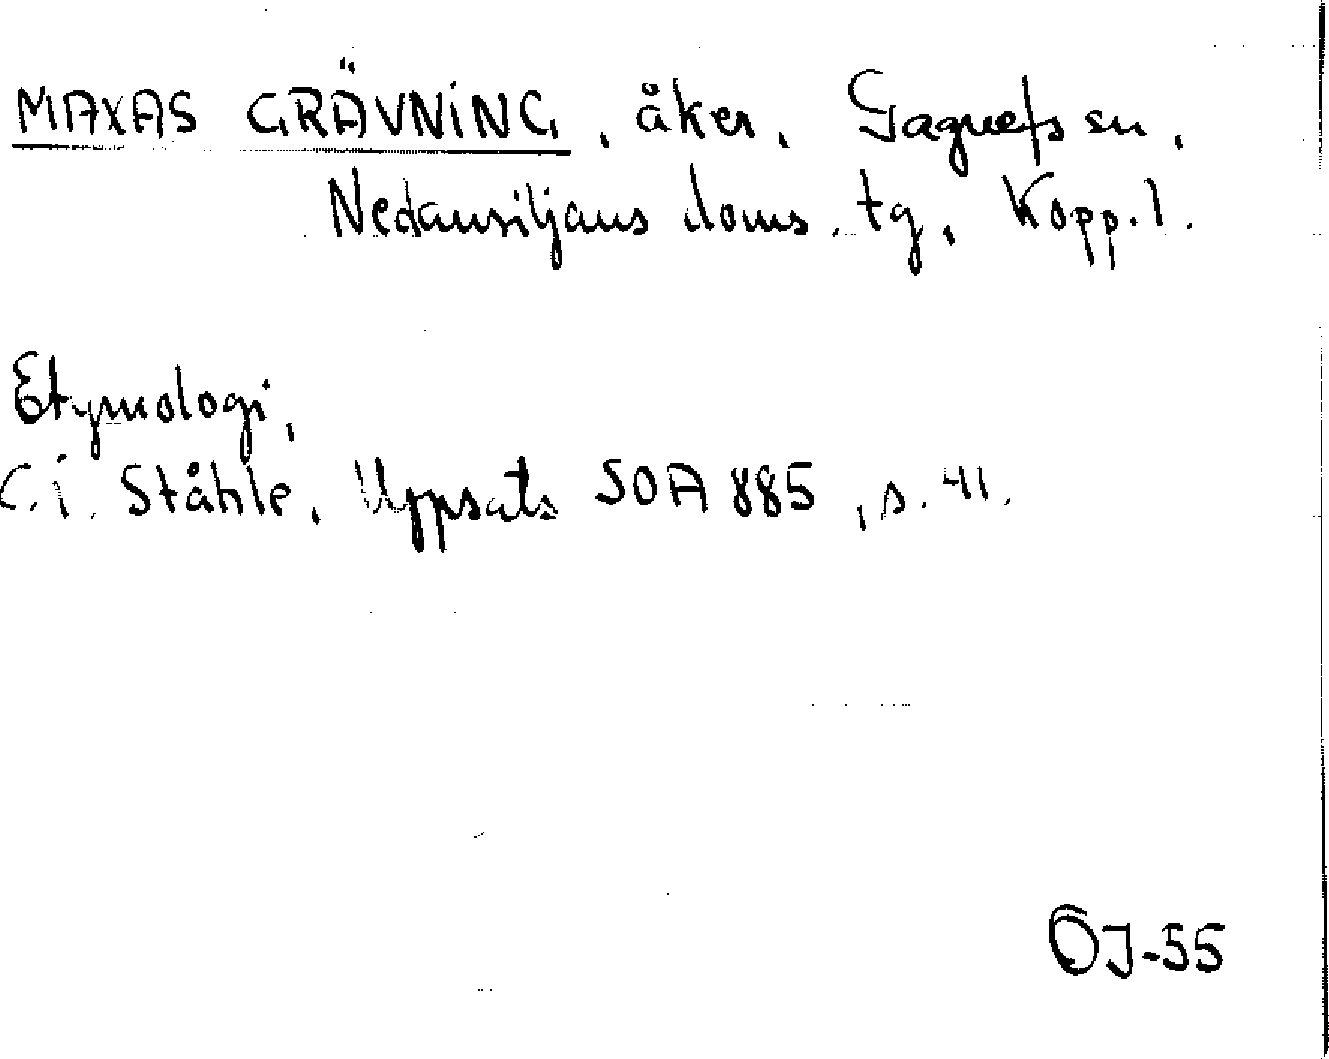 MAXAS GRÄVNING, åker, Gagnefs sn,
Nedansiljans doms. tg, Kopp. l.
Etymologi,
C. i. Ståhle, Uppsats SOA 885, s. 41.
ÖJ-55